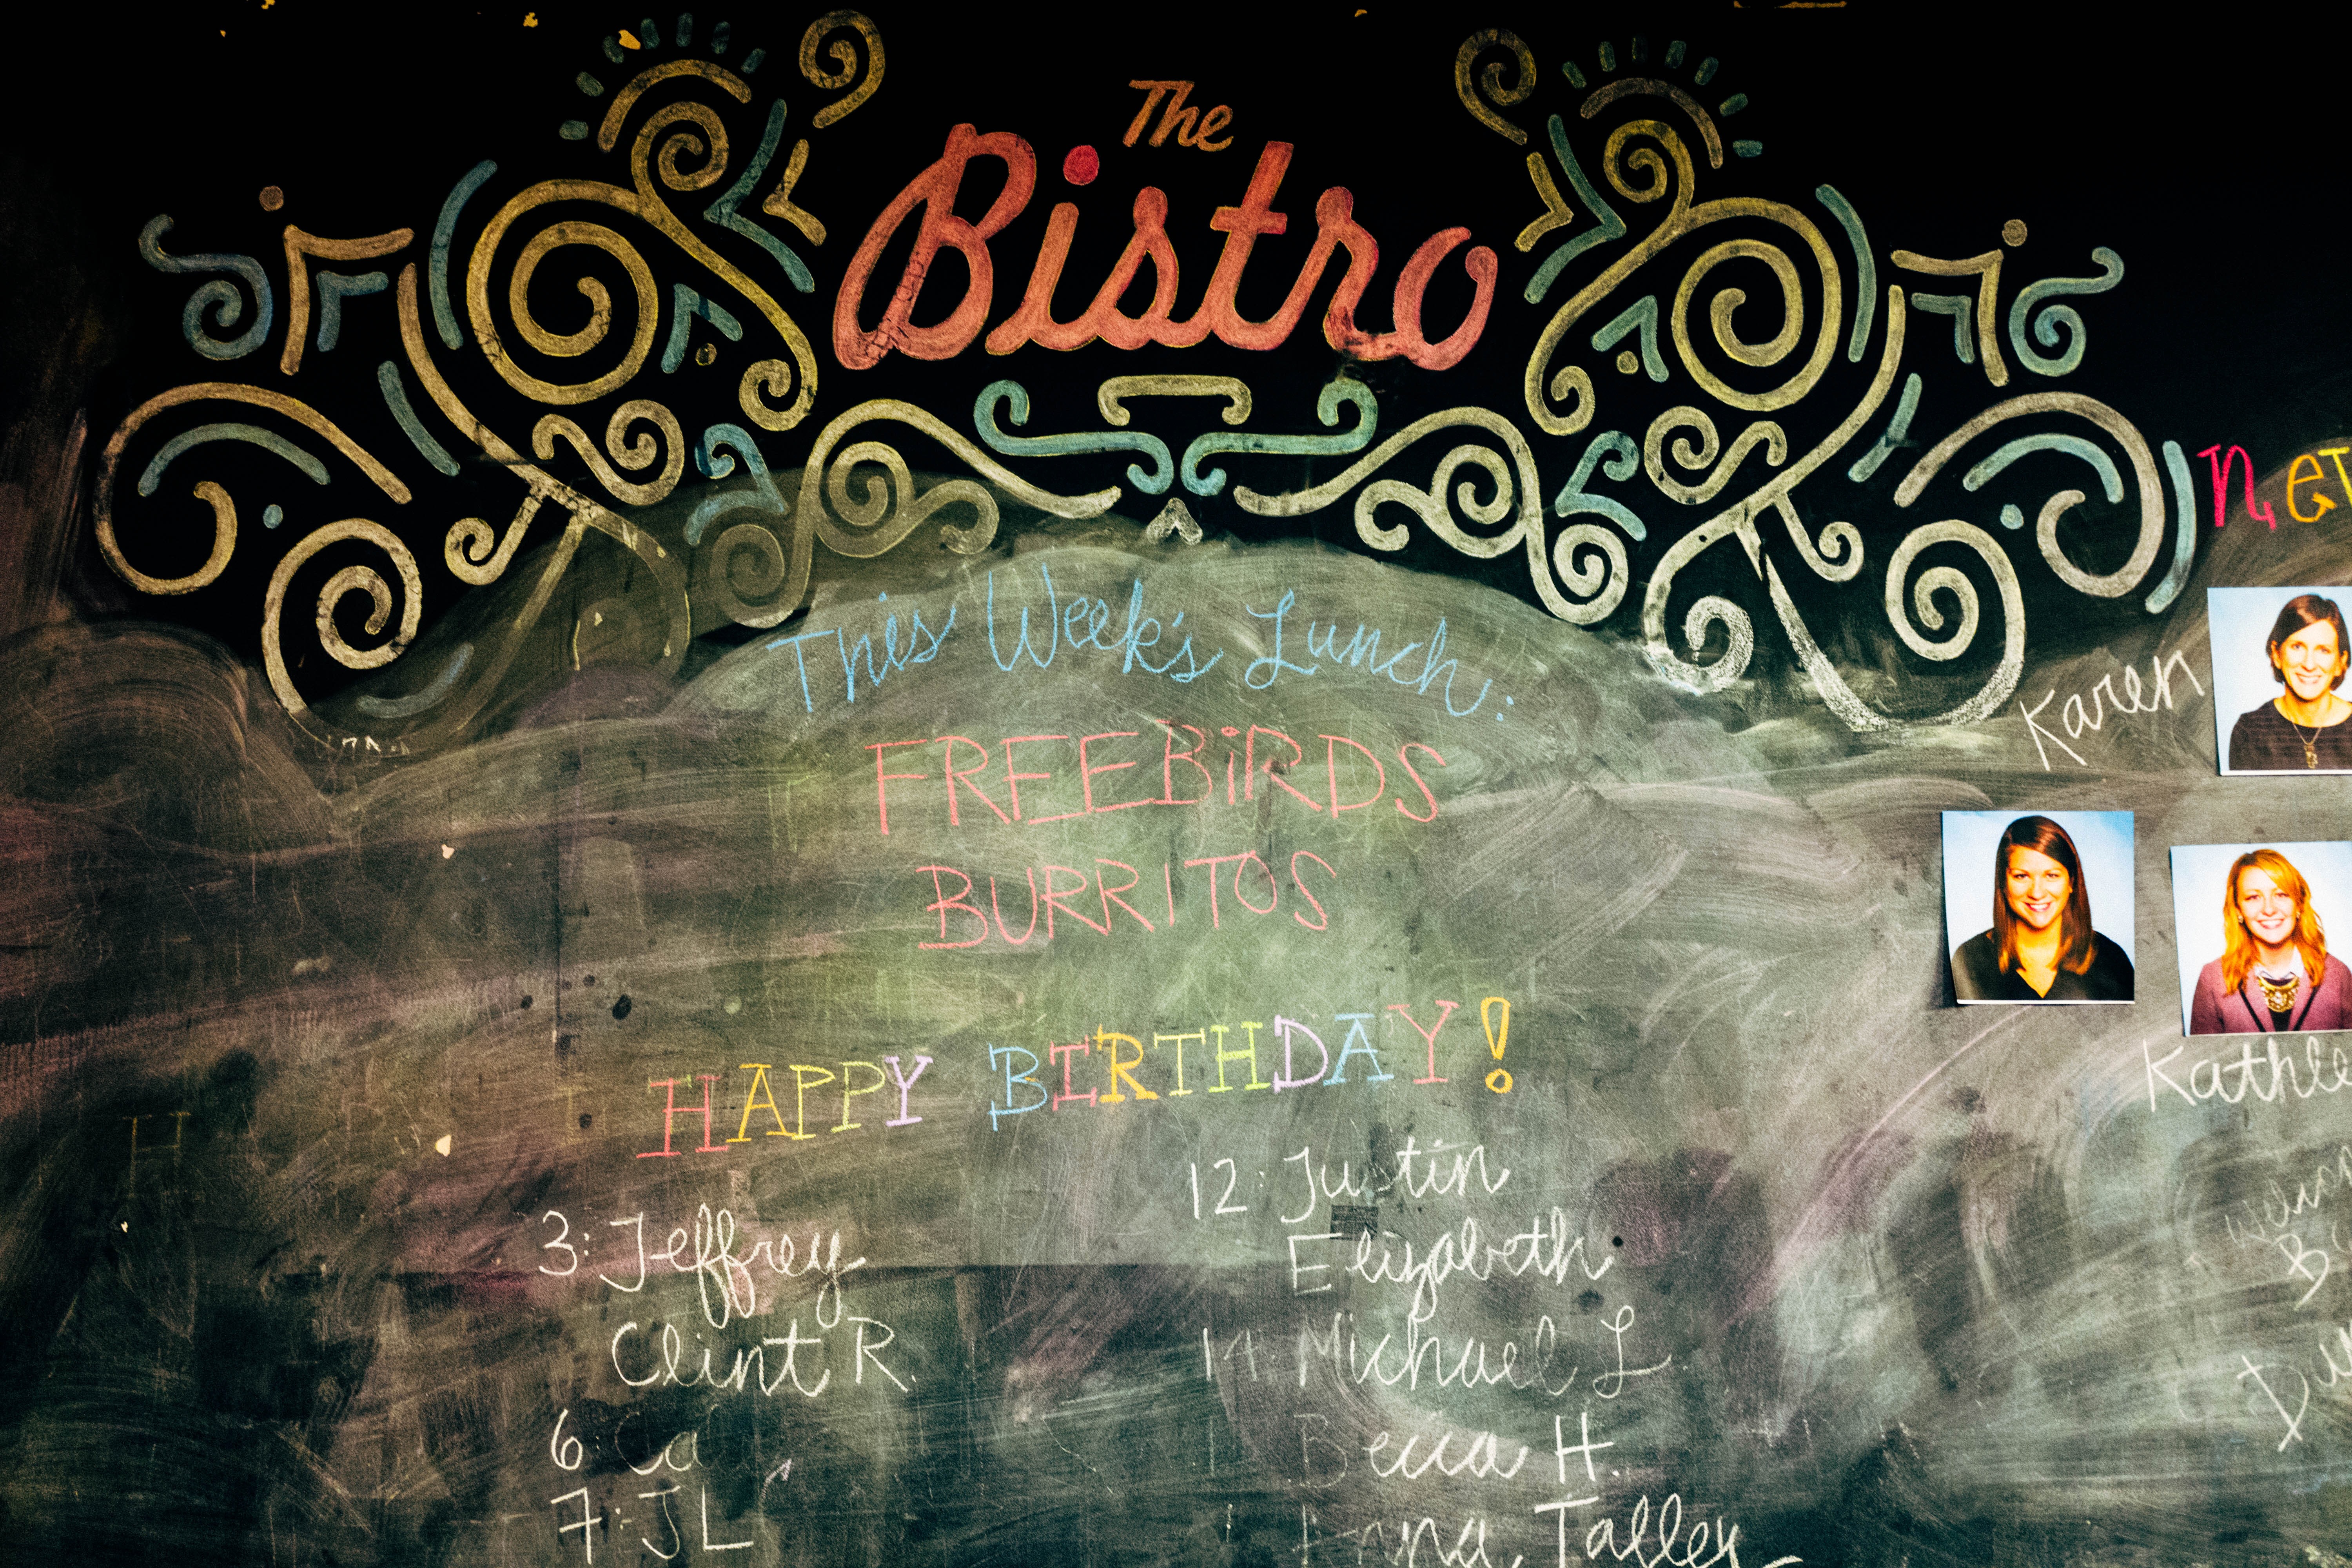 The
Bistro
This Week's Lunch:
FREEBiRDS
BURRITOS
HAPPY BIRTHDAY!
3: Jeffrey
Clint R.
6:
7: JL
12: Justin
Elizabeth
14: Michael L
Becca H.
Talley
Karen